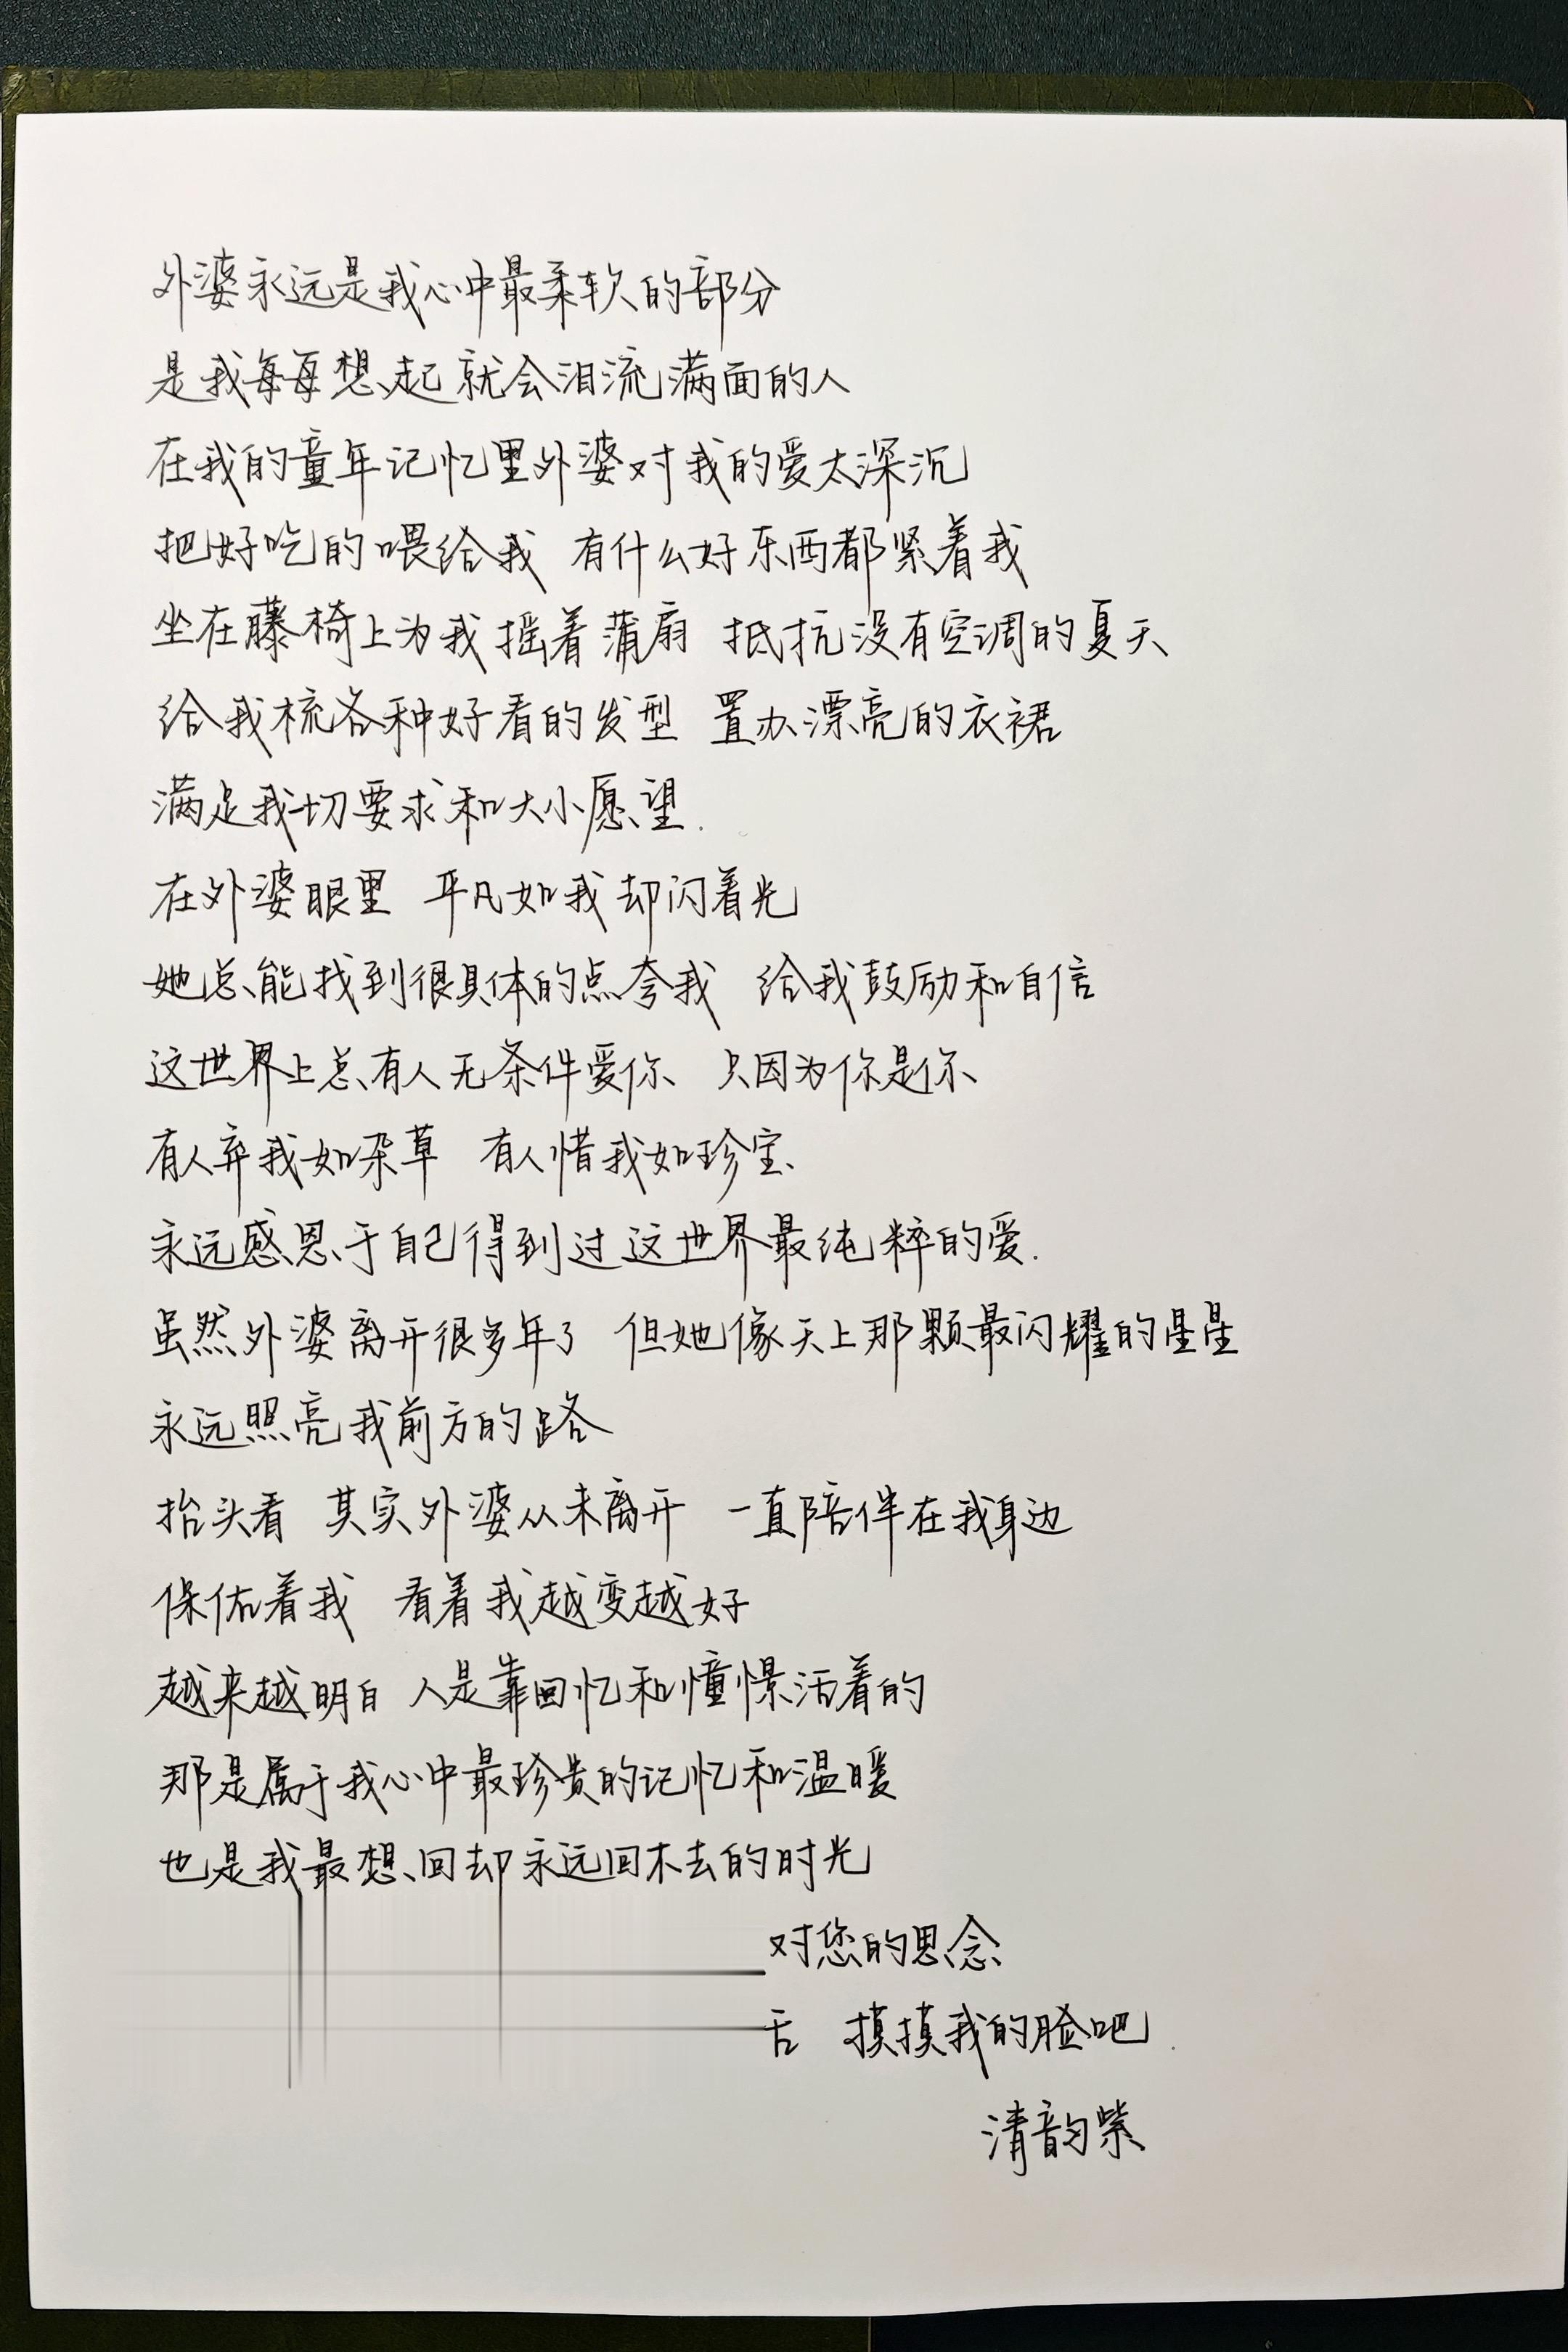 外婆永远是我心中最柔软的部分
是我每每想起就会泪流满面的人
在我的童年记忆里外婆对我的爱太深沉
把好吃的喂给我 有什么好东西都紧着我
坐在藤椅上为我摇着蒲扇 抵抗没有空调的夏天
给我梳各种好看的发型 置办漂亮的衣裙
满足我一切要求和大小愿望.
在外婆眼里 平凡如我却闪着光
她总能找到很具体的点夸我 给我鼓励和自信
这世界上总有人无条件爱你 只因为你是你
有人弃我如杂草 有人惜我如珍宝
永远感恩于自己得到过这世界最纯粹的爱.
虽然外婆离开很多年了 但她像天上那颗最闪耀的星星
永远照亮我前方的路
抬头看 其实外婆从未离开 一直陪伴在我身边
保佑着我 看着我越变越好
越来越明白 人是靠回忆和憧憬活着的
那是属于我心中最珍贵的记忆和温暖
也是我最想回却永远回不去的时光
对您的思念
摸摸我的脸吧
清韵紫